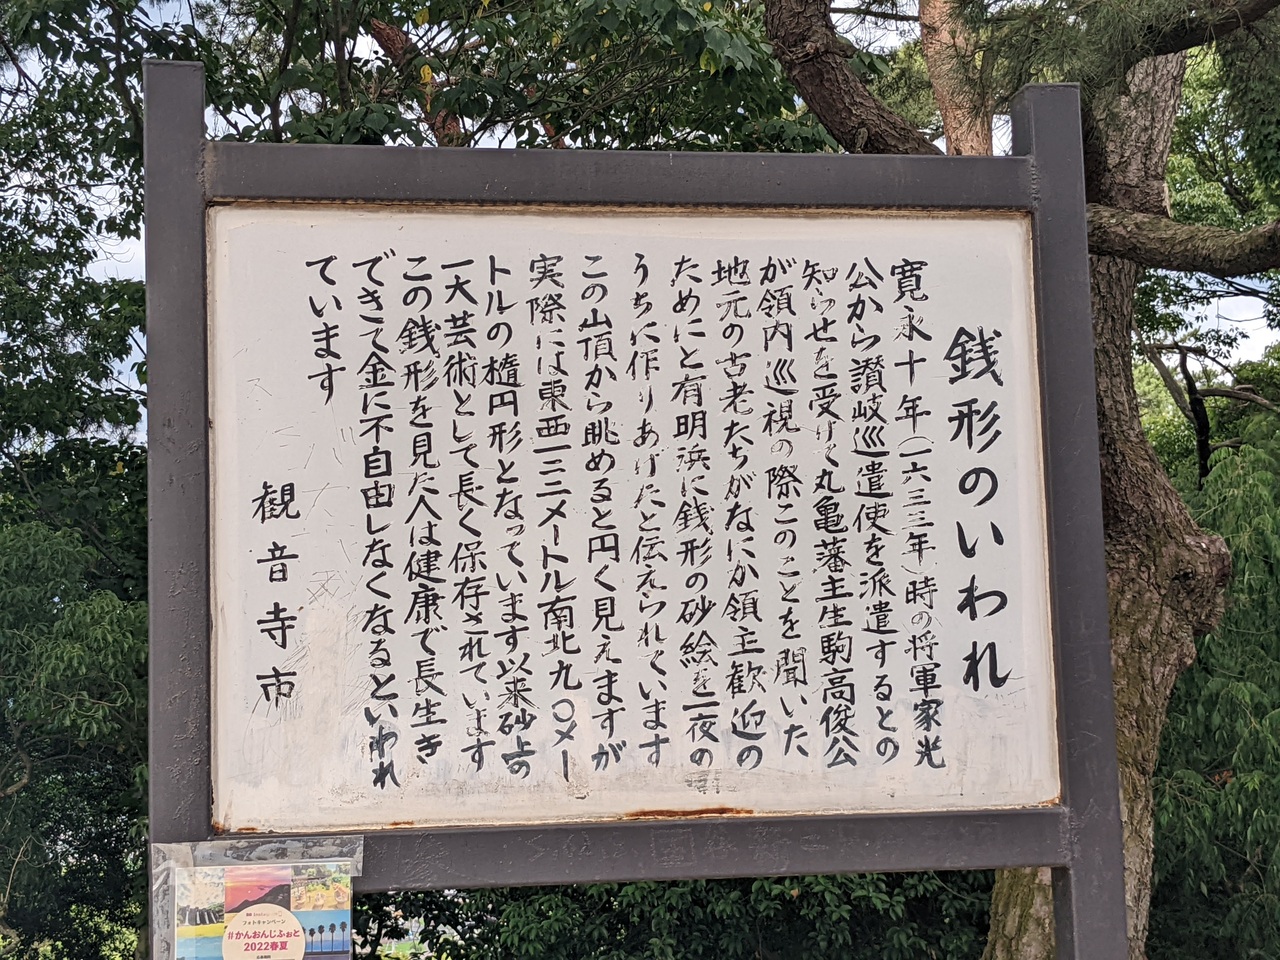 銭形のいわれ
寛永十年(一六三三年)時の将軍家光
公から讃岐巡遣使を派遣するとの
知らせを受けて丸亀藩主生駒高俊公
が領内巡視の際このことを聞いた
地元の古老たちがなにか領主歓迎の
ためにと有明浜に銭形の砂絵を一夜の
うちに作りあげたと伝えられています
この山頂から眺めると円く見えますが
実際には東西一二二メートル南北九〇メー
トルの楕円形となっています以来砂上の
一大芸術として長く保存されています
この銭形を見た人は健康で長生き
できて金に不自由しなくなるといわれ
ています
観音寺市
フォトキャンペーン
#かんおんじふぉと
2022春夏